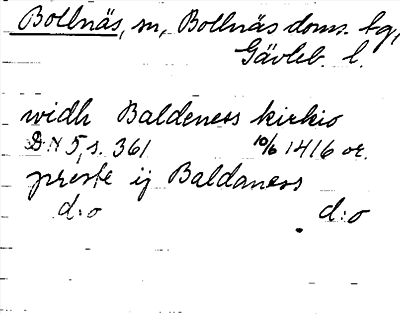 Bollnäs, sn, Bollnäs doms. tg,
Gävleb. l.
widh Baldeness kirkio
DN 5, s. 361 10/6 1416 or.
preste ij Baldaness
d:o d:o